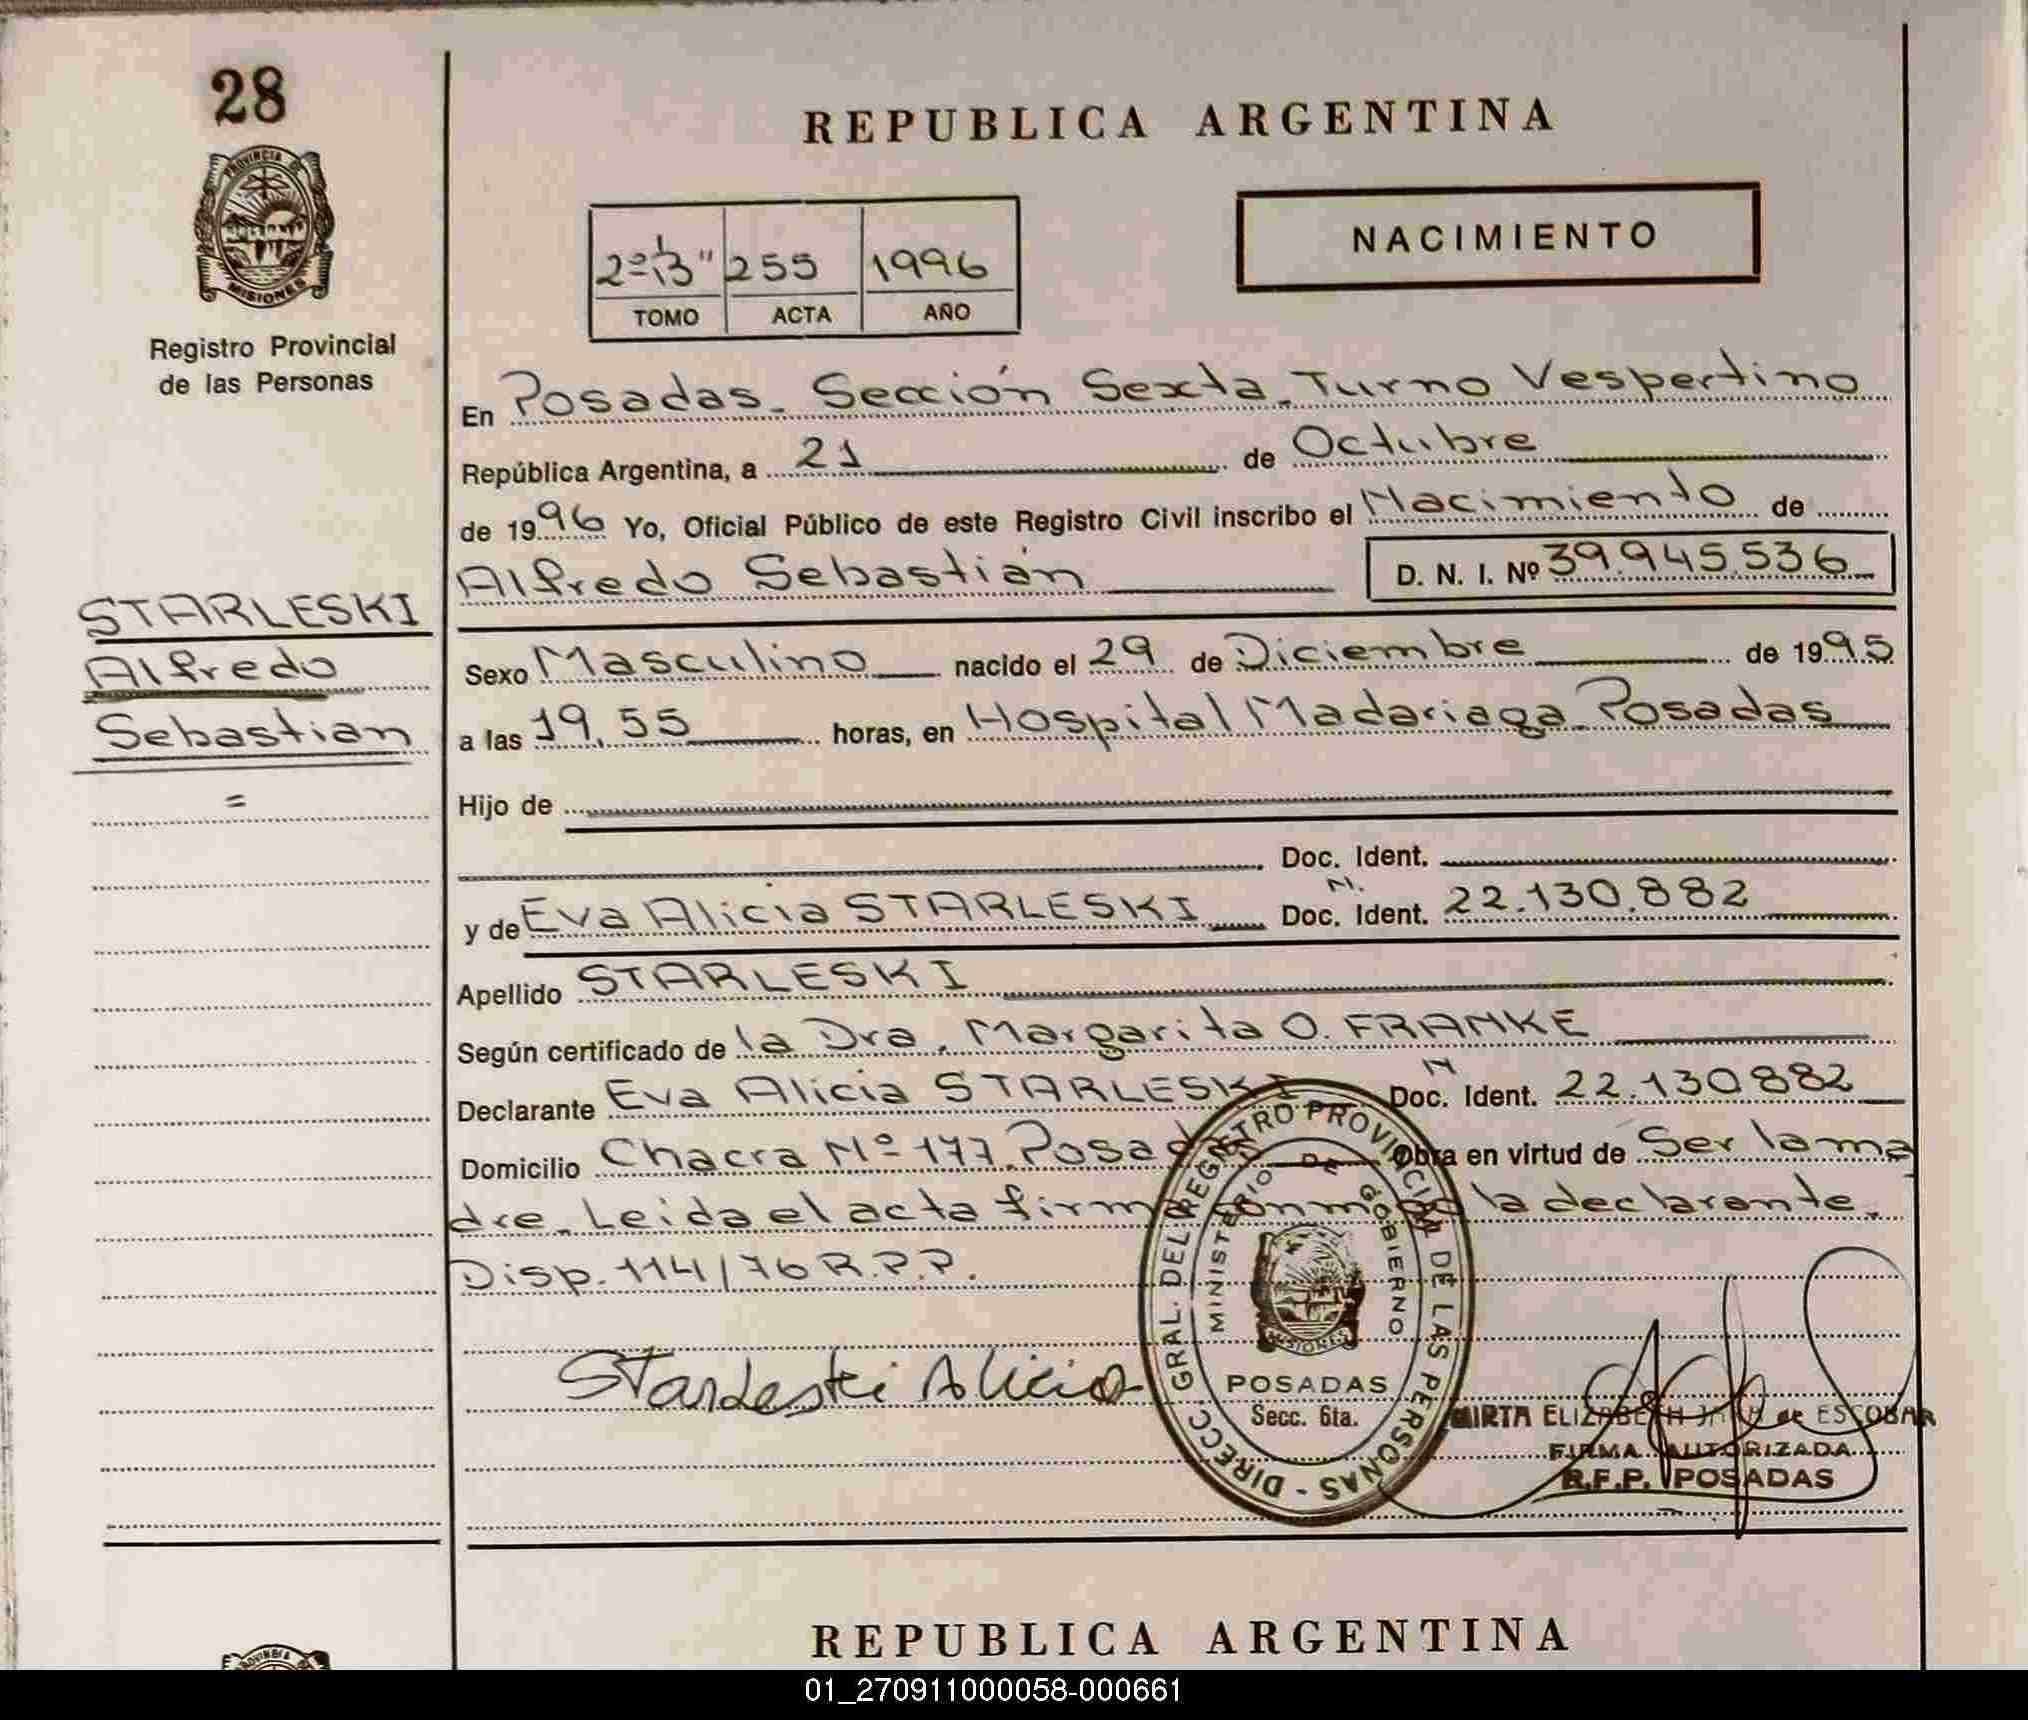 28
PROVINCIA DE
MISIONES
Registro Provincial
de las Personas
STARLESKI
Alfredo
Sebastian
=
REPUBLICA ARGENTINA
NACIMIENTO
255 1996
TOMO ACTA AÑO
En Posadas. Sección Sexta. Turno Vespertino
República Argentina, a 21 de Octubre
de 1996 Yo, Oficial Público de este Registro Civil inscribo el Nacimiento de
Alfredo Sebastián D. N. I. Nº 39.945.536
Sexo Masculino nacido el 29 de Diciembre de 1995
a las 19,55 horas, en Hospital Madariaga. Posadas
Hijo de
Doc. Ident.
N.
y de Eva Alicia STARLESKI Doc. Ident. 22.130.882
Apellido STARLESKI
Según certificado de la Dra. Margarita O. FRANKE
N
Declarante Eva Alicia STARLESKI Doc. Ident. 22.130882
Domicilio Chacra Nº 177. Posadas Obra en virtud de Ser la ma
dre. Leida el acta firma conmigo la declarante.
Disp. 114/76 R.P.P.
DIRECC. GRAL. DEL REGISTRO PROVINCIAL DE LAS PERSONAS -
MINISTERIO DE GOBIERNO
MISIONES
POSADAS
Secc. 6ta.
Starleski Alicia
MIRTA ELIZABETH de ESCOBAR
FIRMA AUTORIZADA
R.P.P. POSADAS
REPUBLICA ARGENTINA
01_270911000058-000661